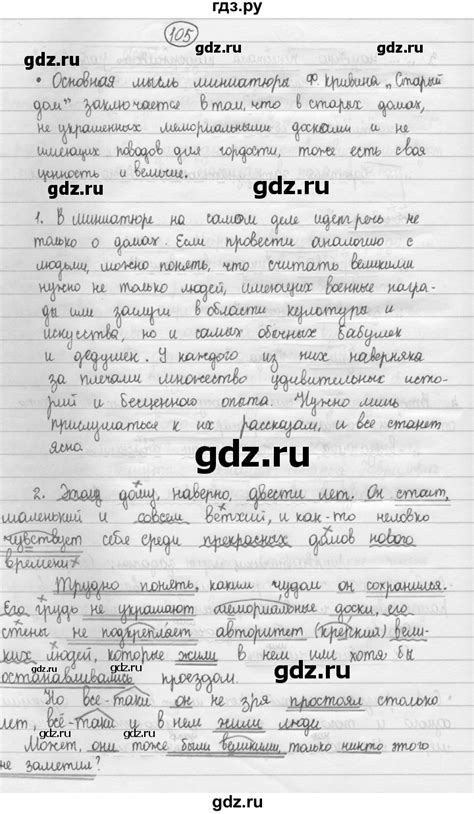 гдз.ру
105
• Основная мысль миниатюры Ф. Кривина „Старый
gdz.ru
gdz.ru
дом" заключается в том, что в старых домах,
не украшенных мемориальными досками и не
имеющих поводов для гордости, тоже есть своя
ценность и величие.
gdz.ru
gdz.ru
1. В миниатюре на самом деле идет речь не
только о домах. Если провести аналогию с
людьми, можно понять, что считать великими
нужно не только людей, имеющих военные награ-
ды или заслуги в области культуры и
gdz.ru
gdz.ru
искусства, но и самых обычных бабушек
и дедушек. У каждого из них наверняка
за плечами множество удивительных исто-
рий и бесценного опыта. Нужно лишь
прислушаться к их рассказам, и все станет
ясно.
gdz.ru
2. Этому дому, наверно, двести лет. Он стоит,
маленький и совсем ветхий, и как-то неловко
чувствует себя среди прекрасных домов нового
времени.
gdz.ru
gdz.ru
Трудно понять, каким чудом он сохранился.
Его грудь не украшают мемориальные доски, его
стены не подкрепляет авторитет (крепкий) вели-
ких людей, которые жили в нем или хотя бы
останавливались проездом.
gdz.ru
gdz.ru
Но все-таки он не зря простоял столько
лет, всё-таки и в нем жили люди.
Может, они тоже были великими, только никто этого
не заметил?
gdz.ru
gdz.ru